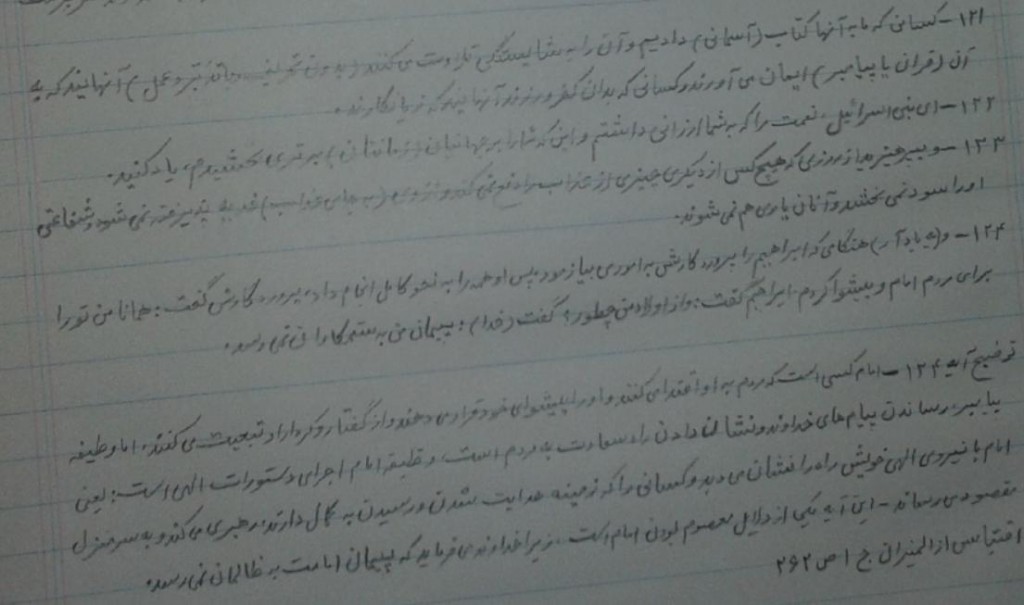 ۱۲۱- کسانی که ما به آنها کتاب (آسمانی) دادیم و آن را به شایستگی تلاوت می کنند (بدون تحریف، جا تدبر و عمل) آنهایند که به
آن (قرآن یا پیامبر) ایمان می آورند و کسانی که بدان کفر ورزند آنهایند که زیانکارند.
۱۲۲- ای بنی اسرائیل، نعمت را که به شما ارزانی داشتم و این که شما را بر جهانیان (زمانتان) برتری بخشیدم، یاد کنید.
۱۲۳- و بپرهیزید از روزی که هیچ کس از دیگری چیزی از عذاب را دفع نمی کند و از وی (به جای عذاب) فدیه پذیرفته نمی شود و شفاعتی
او را سود نمی بخشد و آنان یاری هم نمی شوند.
۱۲۴- و (به یاد آر) هنگامی که ابراهیم را پروردگارش به اموری بیازمود، پس او همه را به نحو کامل انجام داد، پروردگارش گفت: همانا من تو را
برای مردم امام و پیشوا کردم. ابراهیم گفت: و از اولاد من چطور؟ گفت (خدا): پیمان من به ستمکاران نمی رسد.
توضیح آیه ۱۲۴- امام کسی است که مردم به او اقتدا می کنند و او را پیشوای خود قرار می دهند و از گفتار و کردار او تبعیت می کنند. اما وظیفه
پیامبر، رساندن پیام های خداوند و نشان دادن راه سعادت به مردم است. وظیفه امام اجرای دستورات الهی است: یعنی
امام با نیروی الهی خویش راه را نشان می دهد و کسانی را که زمینه هدایت شدن و رسیدن به کمال دارند، رهبری می کند و به سر منزل
مقصود می رساند - این آیه یکی از دلایل معصوم بودن امام است. زیرا خداوند می فرماید که پیمان امامت به ظالمان نمی رسد.
اقتباس از المیزان ج ۱ ص ۲۶۲